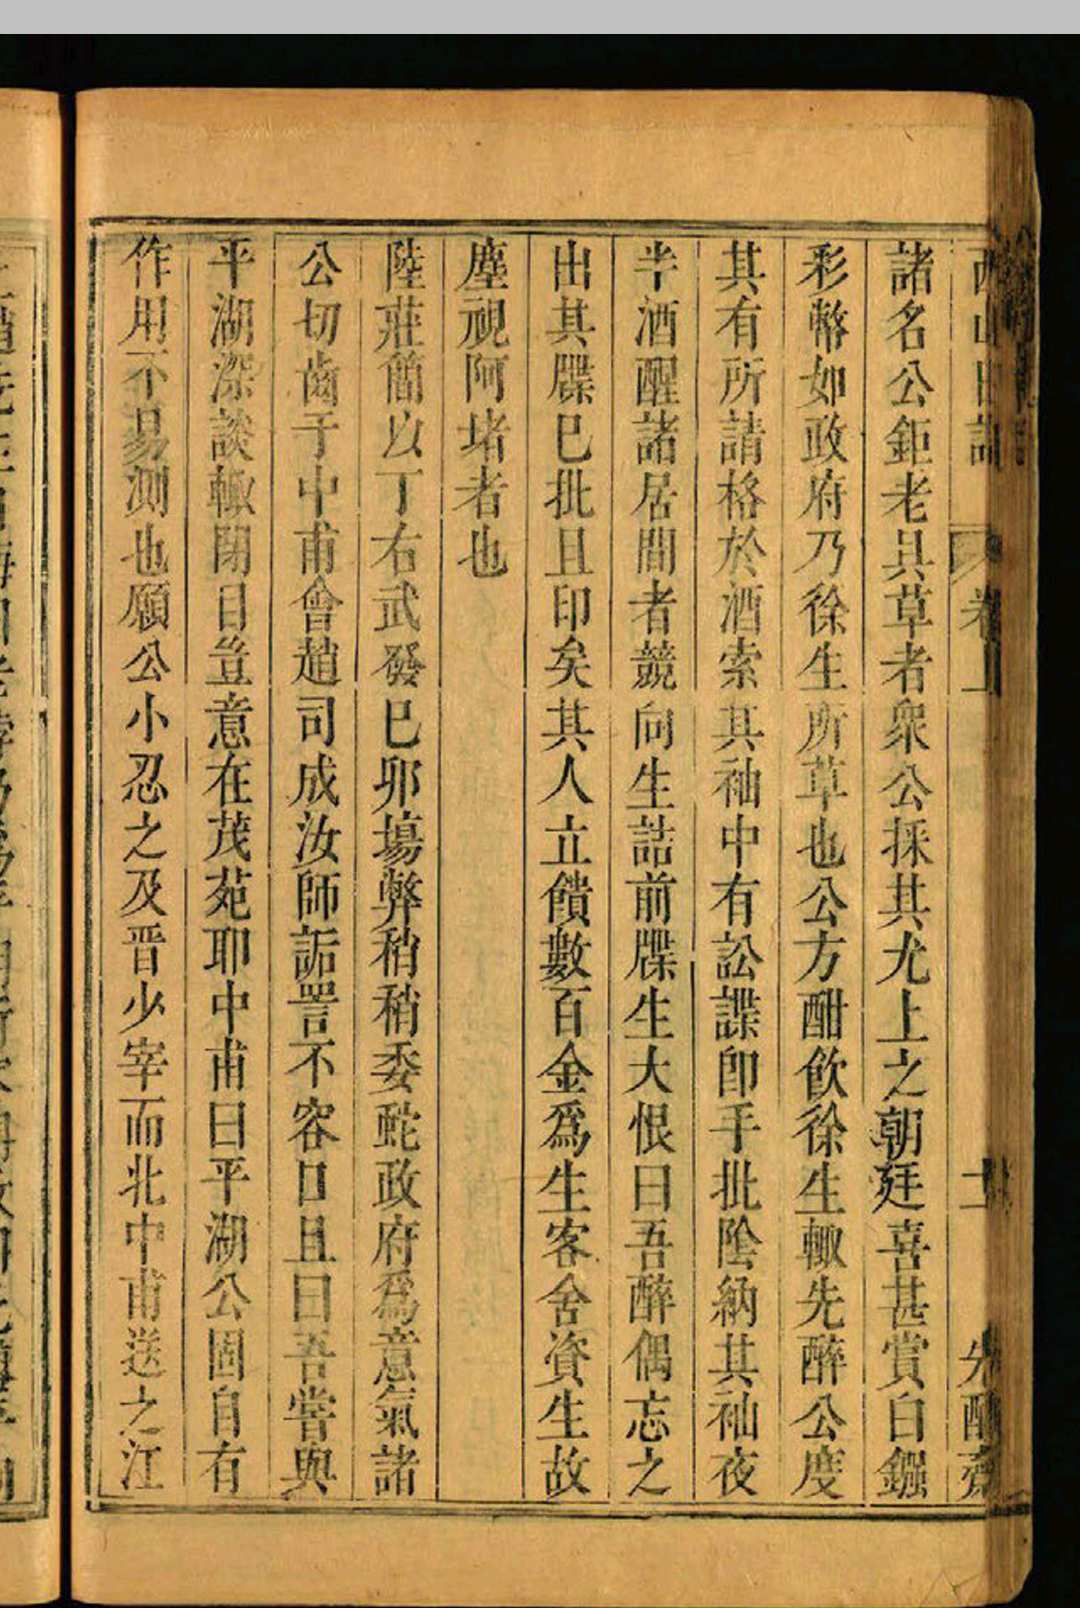 西山日記 卷上 十一 先醒齋
諸名公鉅老具草者衆公採其尤上之朝廷喜甚賞白鏹
彩幣如政府乃徐生所草也公方酣飲徐生輙先醉公度
其有所請格於酒索其袖中有訟諜卽手批陰納其袖夜
半酒醒諸居間者競向生詰前牒生大恨曰吾醉偶忘之
出其牒已批且印矣其人立饋數百金爲生客舍資生故
塵視阿堵者也
陸莊簡以丁右武發巳邜塲弊稍稍委蛇政府爲意氣諸
公切齒于中甫會趙司成汝師詬詈不容口且曰吾嘗與
平湖深談輙閉目豈意在茂苑耶中甫曰平湖公固自有
作用不易測也願公小忍之及晋少宰而北中甫送之江